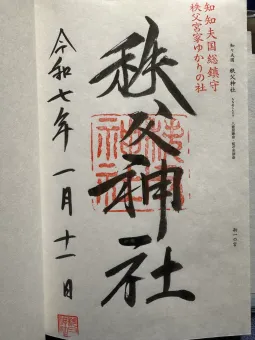 知知夫国総鎮守
秩父宮家ゆかりの社
秩父神社
令和七年一月十一日
秩父神社